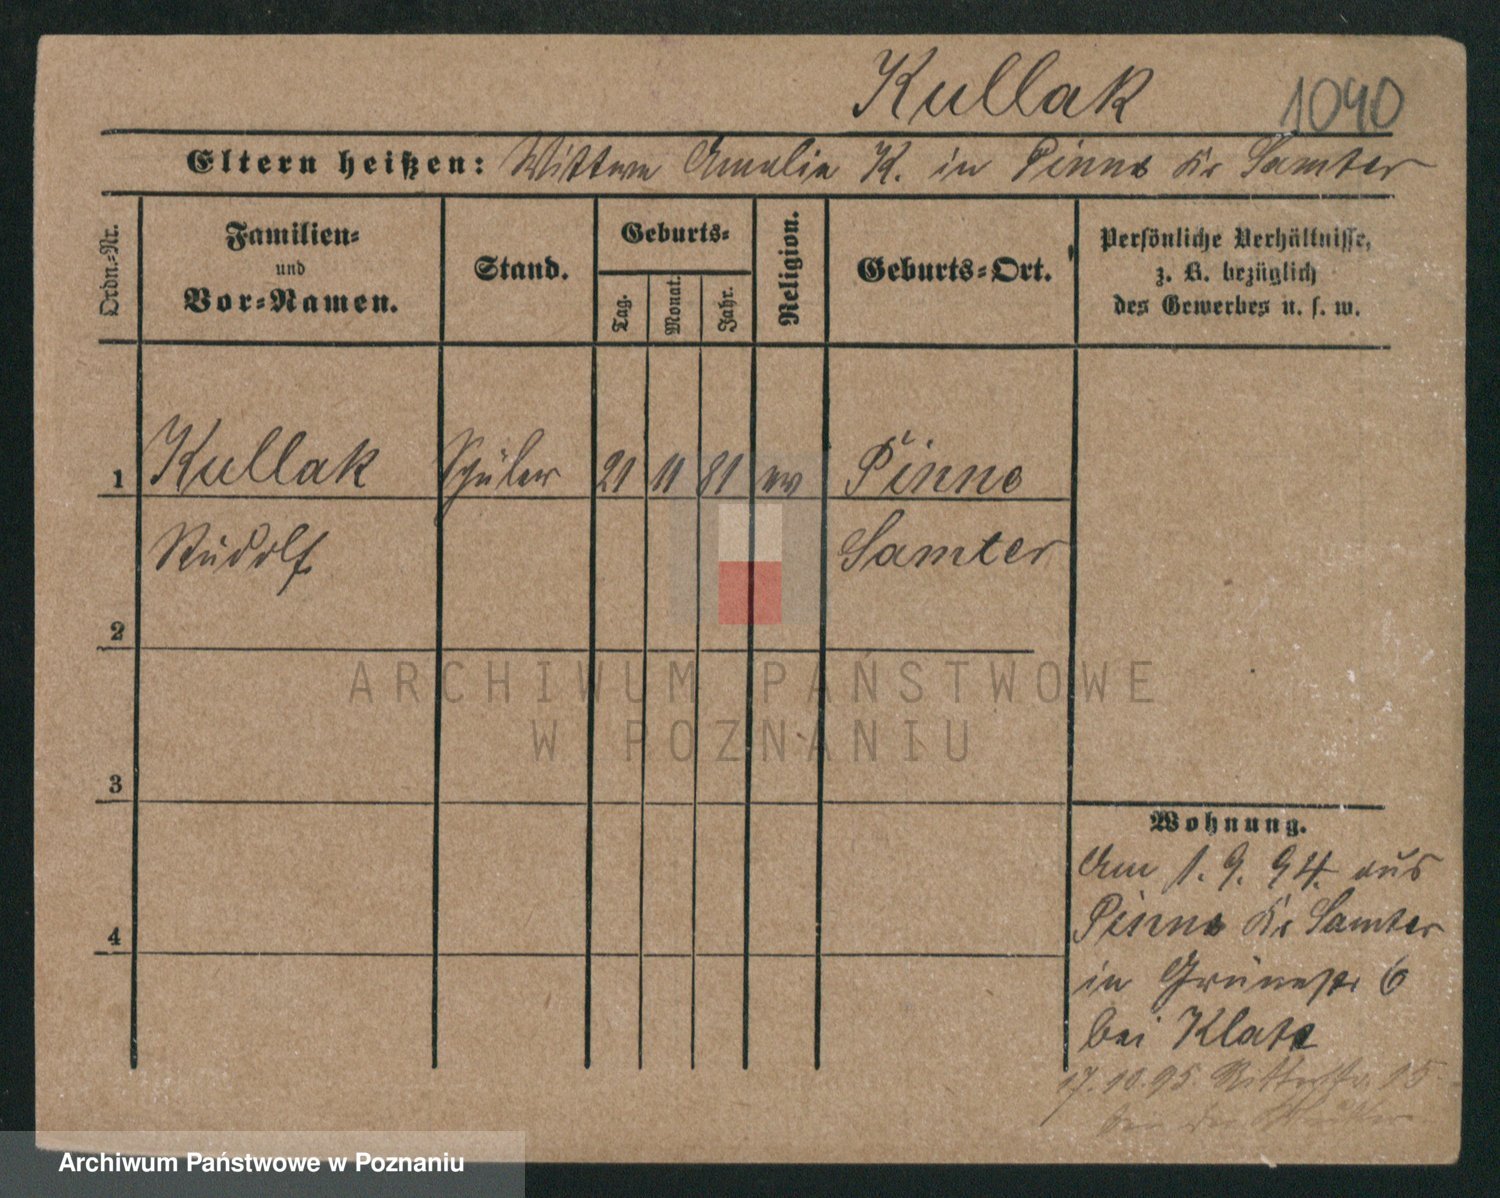 Kullak 1090
Eltern heißen: Wittwe Amalie K. in Pinne Kr Samter
Ordn.-Nr.
Familien-
und
Vor-Namen.
Stand.
Geburts-
Tag.
Monat.
Jahr.
Religion.
Geburts-Ort.
Persönliche Verhältnisse,
z. B. bezüglich
des Gewerbes u. s. w.
1 Kullak Schüler 21 11 81 ev Pinne
Rudolf Samter
2
3
4
Wohnung.
Am 1. 9. 94. aus
Pinne Kr Samter
in Grünestr 6
bei Klatt
17.10.95 Ritterstr. 15
bei der Mutter
ARCHIWUM PAŃSTWOWE
W POZNANIU
Archiwum Państwowe w Poznaniu